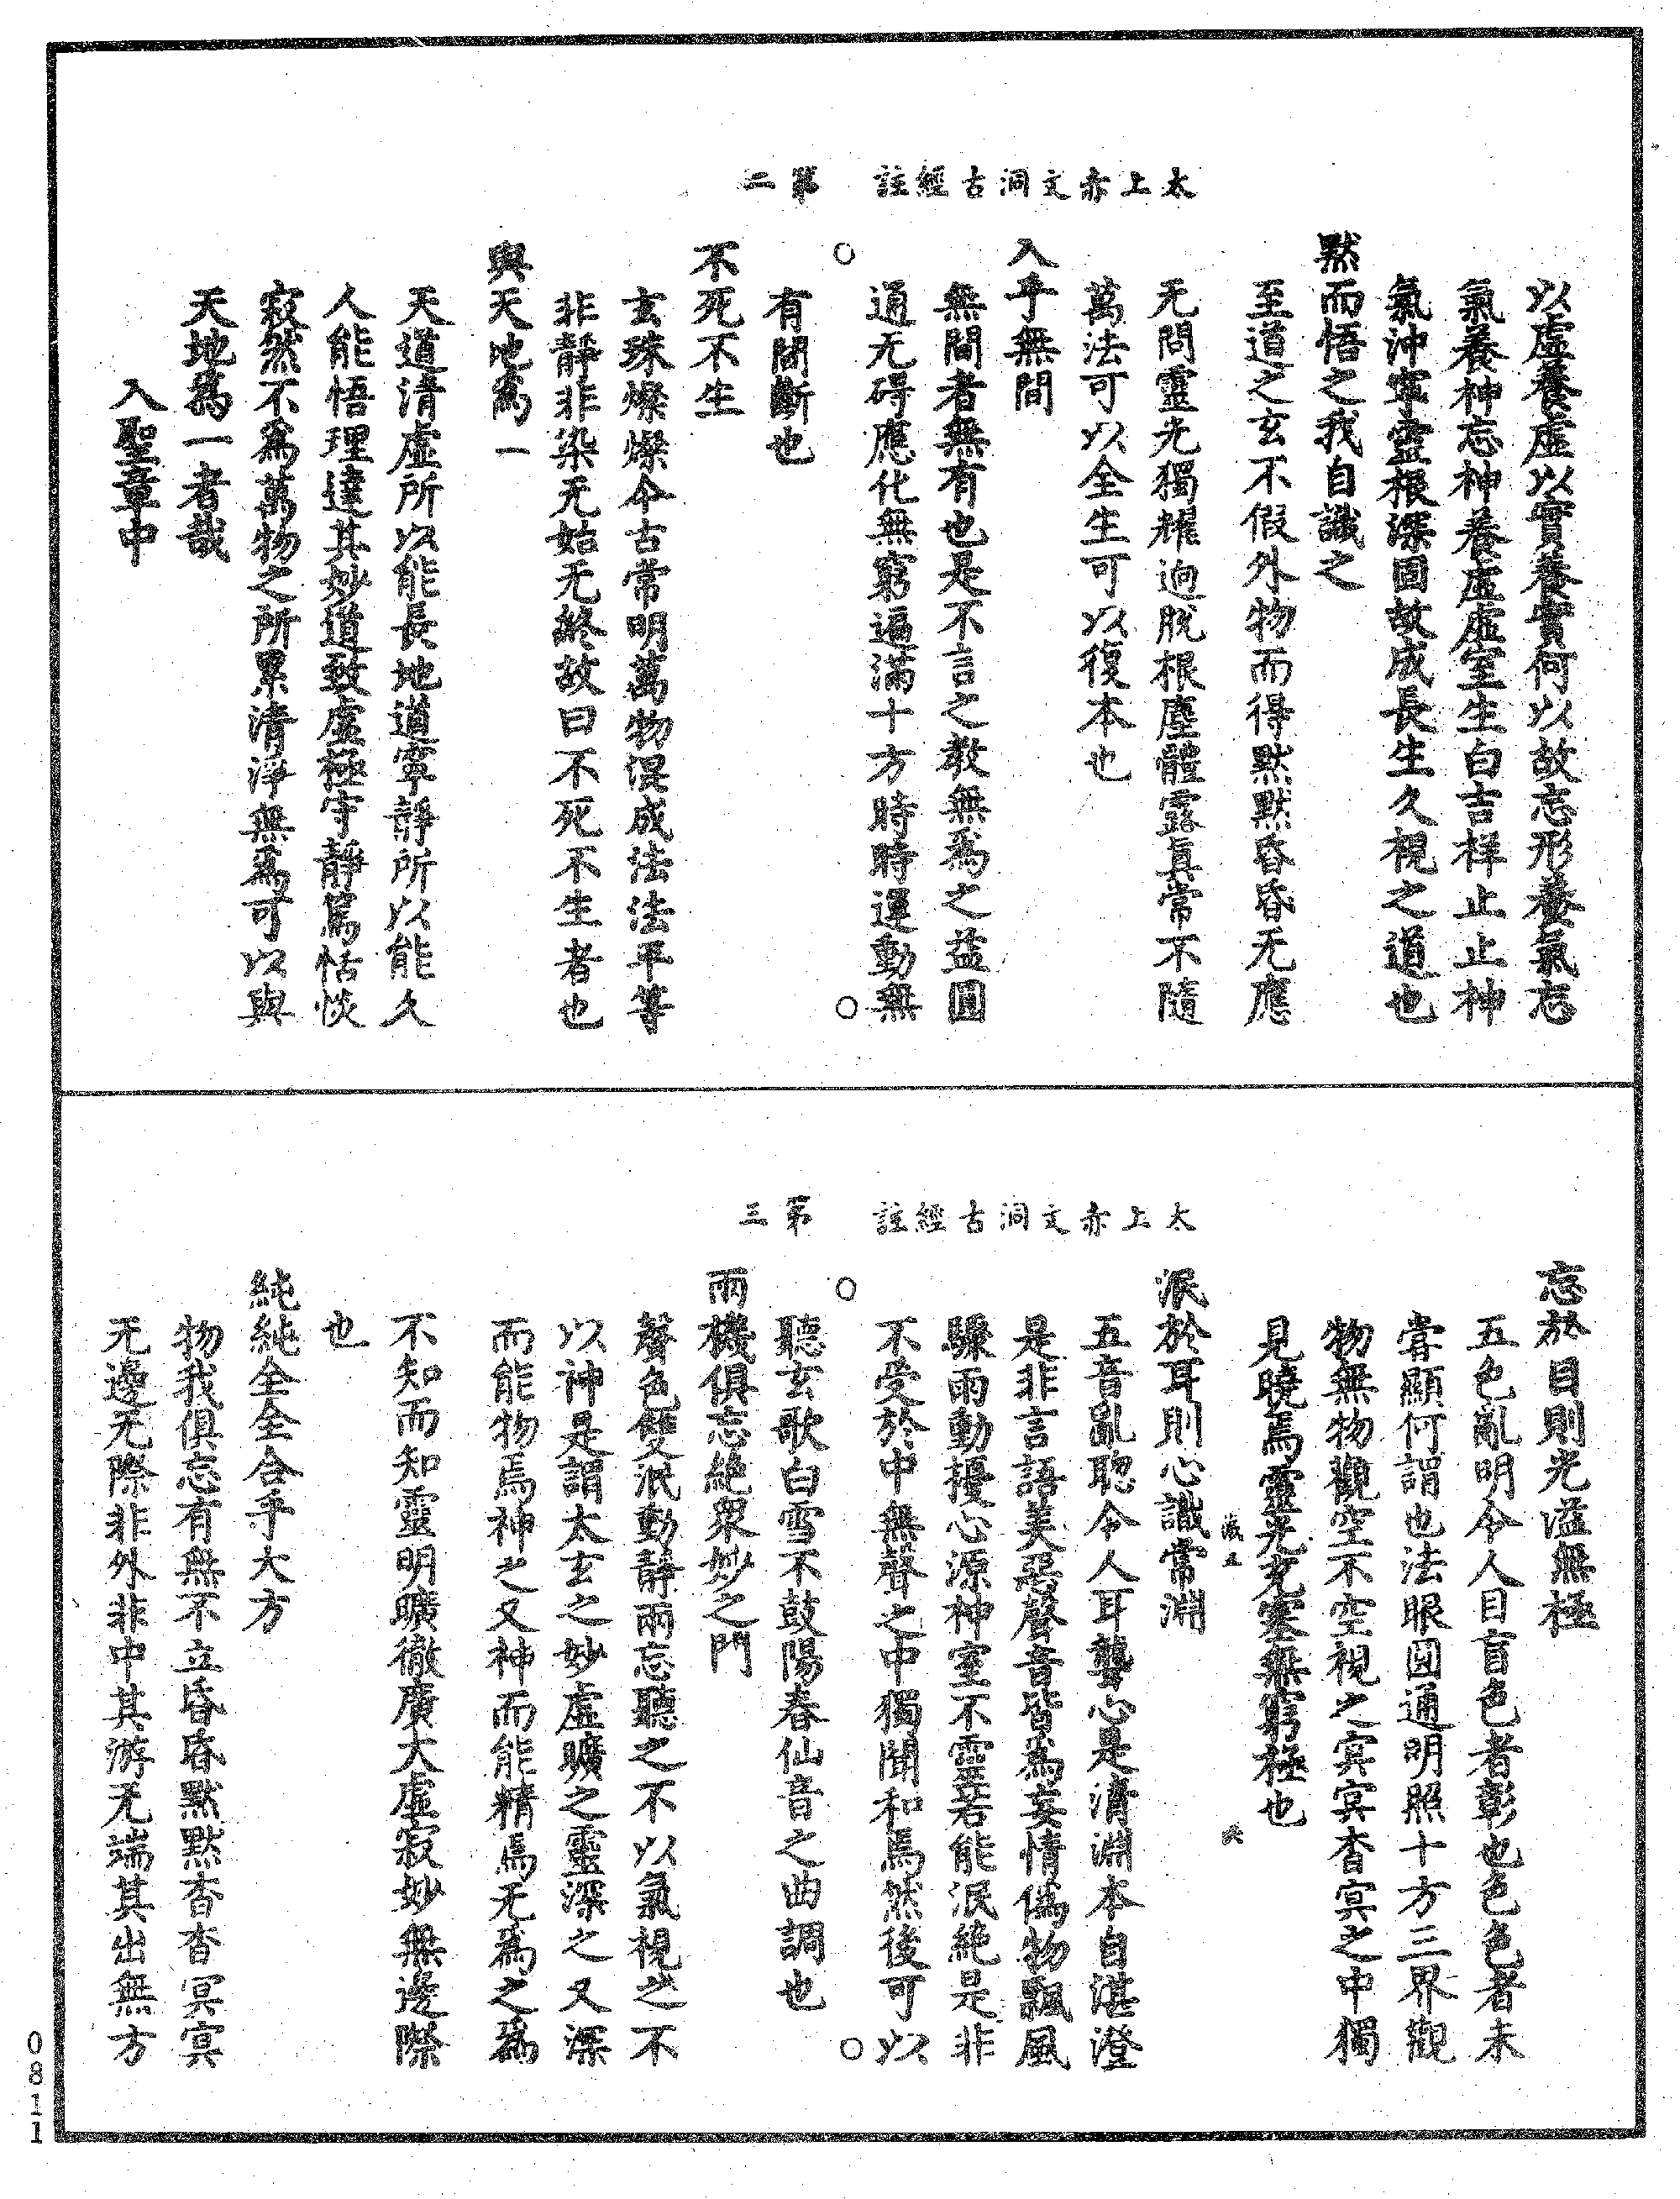 太上赤文洞古經註　第二
以虛養虛以實養實何以故忘形養氣忘
氣養神忘神養虛虛室生白吉祥止止神
氣沖寧靈根深固故成長生久視之道也
默而悟之我自識之
至道之玄不假外物而得默默昏昏无應
无問靈光獨耀迥脫根塵體露真常不隨
萬法可以全生可以復本也
入乎無間
無間者無有也是不言之教無為之益圓
通无碍應化無窮遍滿十方時時運動無
有間斷也
不死不生
玄珠燦燦今古常明萬物混成法法平等
非靜非染无始无終故曰不死不生者也
與天地為一
天道清虛所以能長地道寧靜所以能久
人能悟理達其妙道致虛極守靜篤恬惔
寂然不為萬物之所累清淨無為可以與
天地為一者哉
入聖章中
太上赤文洞古經註　第三
忘於目則光溢無極
五色亂明令人目盲色者彰也色色者未
嘗顯何謂也法眼圓通明照十方三界觀
物無物觀空不空視之冥冥杳冥之中獨
見曉焉靈光充塞無窮極也
泯於耳則心識常淵
五音亂聰令人耳聾心是清淵本自湛澄
是非言語美惡聲音皆為妄情偽物飄風
驟雨動擾心源神室不靈若能泯絕是非
不受於中無聲之中獨聞和焉然後可以
聽玄歌白雪不鼓陽春仙音之曲調也
兩機俱忘絕眾妙之門
聲色俱泯動靜兩忘聽之不以氣視之不
以神是謂太玄之妙虛曠之靈深之又深
而能物焉神之又神而能精焉无為之為
不知而知靈明曠徹廣大虛寂妙無邊際
也
純純全全合乎大方
物我俱忘有無不立昏昏默默杳杳冥冥
无邊无際非外非中其游无端其出無方
0811